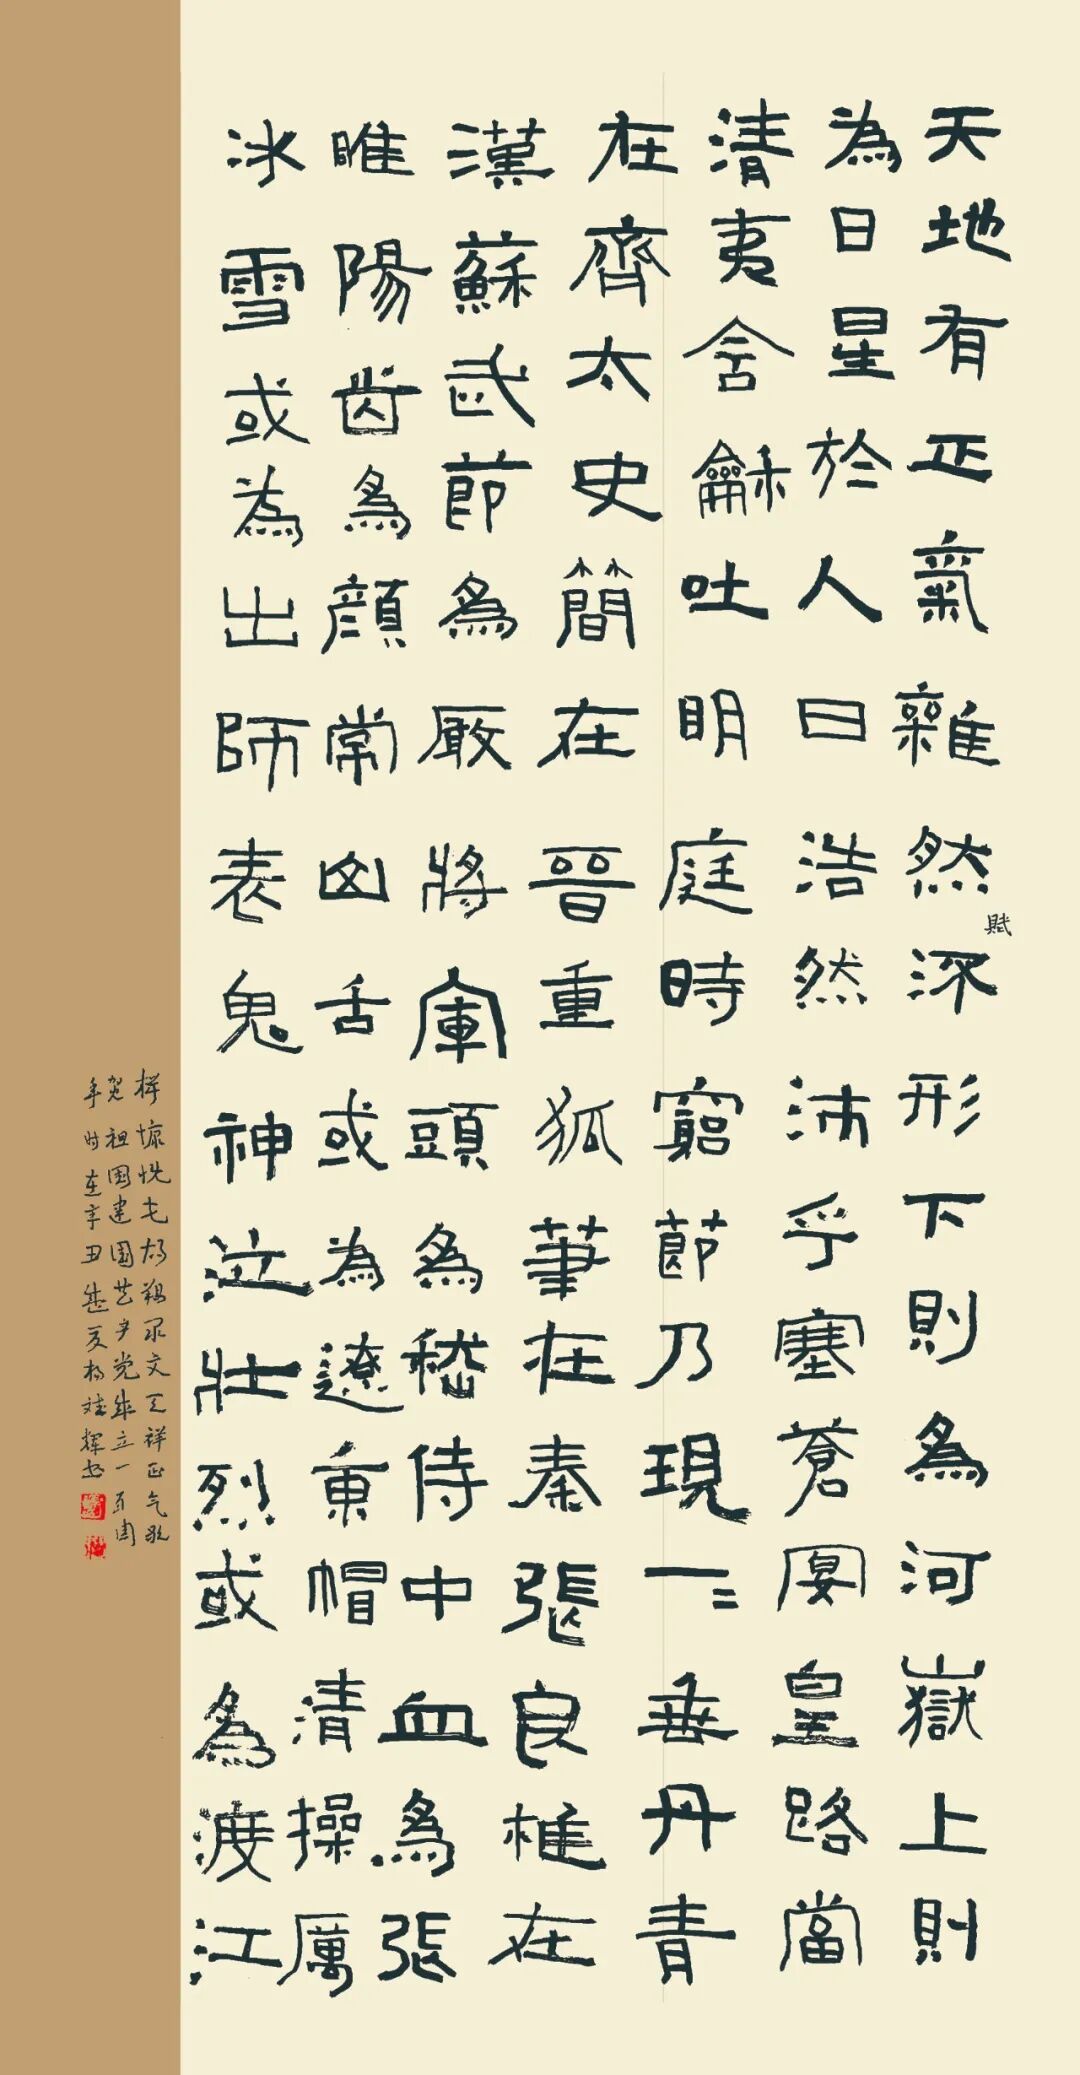 天地有正氣雜然賦流形下則為河嶽上則
為日星於人曰浩然沛乎塞蒼冥皇路當
清夷含龢吐明庭時窮節乃現一二垂丹青
在齊太史簡在晉重狐筆在秦張良椎在
漢蘇武節為嚴將軍頭為嵇侍中血為張
睢陽齒為顏常山舌或為遼東帽清操厲
冰雪或為出師表鬼神泣壯烈或為渡江
慷慨文天祥正气歌
贺祖国建国党成立一百周
年时在辛丑盛夏书